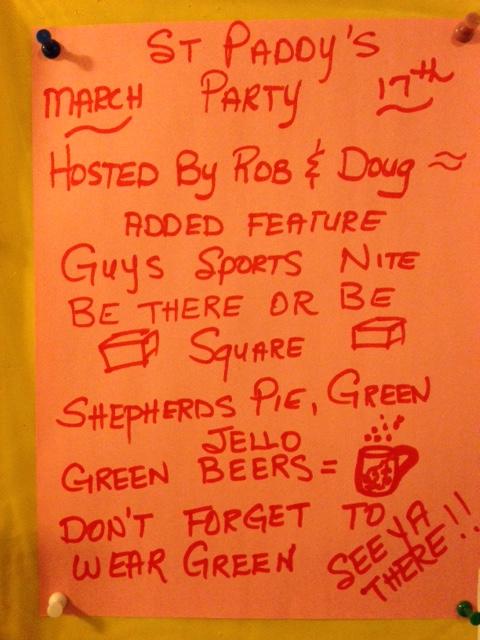 ST PADDY'S
MARCH PARTY 17th
HOSTED By ROB & Doug ≈
ADDED FEATURE
Guys SPORTS NITE
BE THERE OR BE
SQUARE
SHEPHERDS PIE, GREEN
JELLO
GREEN BEERS =
DON'T FORGET TO
WEAR GREEN
SEE YA
THERE!!